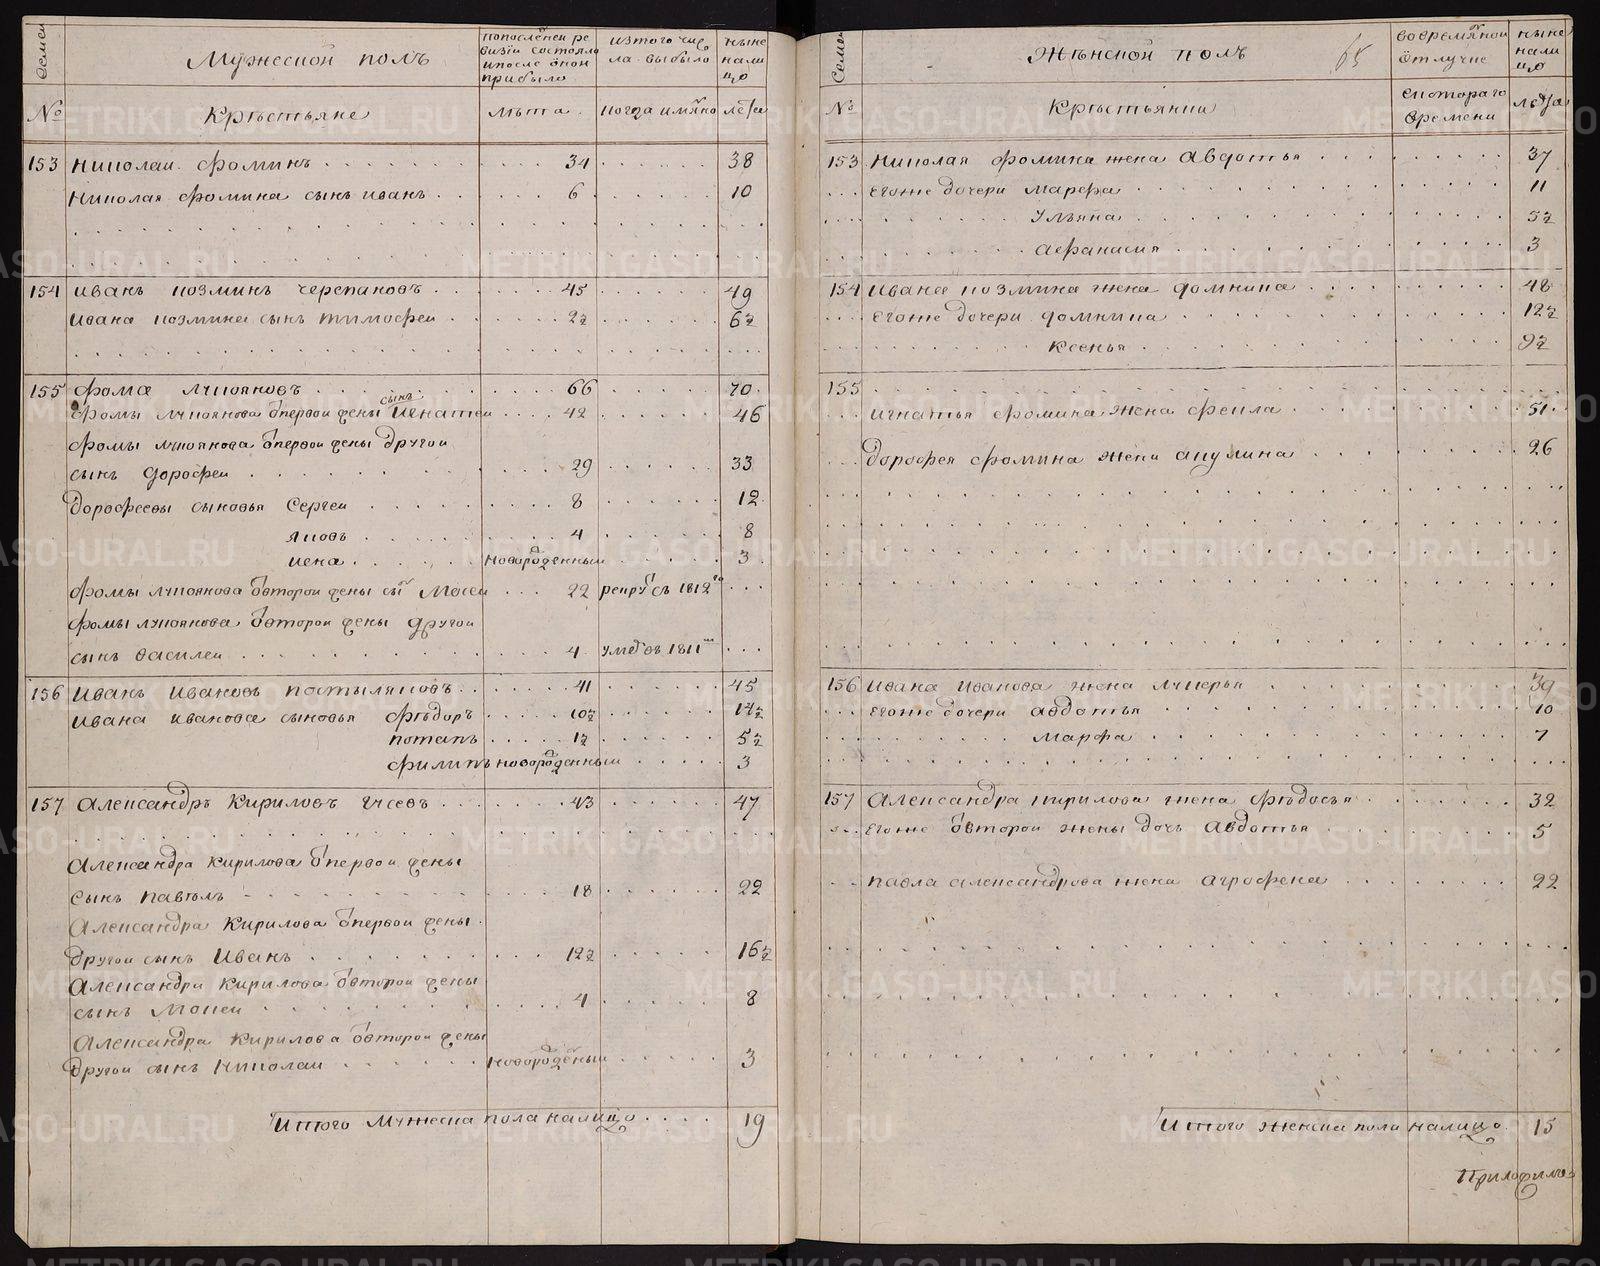 Семеи
Мужеской полъ
попоследней ре
визїи состояло
ипосле оной
прибыло
изтого чис
ла выбыло
ныне
нали
цо
№
Крѣстьяне
лѣта
когда имянно
лета
153 Николай Фоминъ 34 38
Николая Фомина сынъ иванъ 6 10
154 иванъ козминъ черепановъ 45 49
ивана козмина сынъ тимофей 2½ 6½
155 Фома лукояновъ 66 70
сынъ
Фомы лукоянова отпервой жены игнатей 42 46
Фомы лукоянова отпервой жены другой
сынъ дорофей 29 33
дорофеевы сыновья Сергей 8 12
яковъ 4 8
новорожденный 3
Фомы лукоянова отвторой жены сынъ Мосей 22 рекрутъ съ 1812го
Фомы лукоянова отвторой жены другой
сынъ василей 4 умре въ 1811м
156 Иванъ Ивановъ костыляковъ 41 45
Ивана иванова сыновья Фѣдоръ 10½ 14½
потапъ 1½ 5½
Филипъ новорожденный 3
157 Александръ Кириловъ гусевъ 43 47
Александра Кирилова отпервой жены
сынъ павѣлъ 18 22
Александра Кирилова отпервой жены
другой сынъ Иванъ 12½ 16½
Александра Кирилова отвторой жены
сынъ Мокей 4 8
Александра Кирилова отвторой жены
другой сынъ Николай новорожденный 3
Итого Мужеска пола налицо 19
Семеи
Жѣнской полъ
65
вовремянной
отлучке
ныне
нали
цо
№
Крѣстьянки
скотораго
времени
лета
153 Николая Фомина жена авдотья 37
Егоже дочери марфа 11
Ульяна 5½
афанасия 3
154 Ивана козмина жена домнина 48
Егоже дочери домнина 12½
Ксенья 9½
155
игнатья Фомина жена фекла 51
дорофея Фомина жена акулина 26
156 Ивана Иванова жена лукерья 39
Егоже дочери авдотья 10
Марфа 7
157 Александра кирилова жена Фѣдосья 32
Егоже отвторой жены дочь авдотья 5
павла александрова жена агрофена 22
Итого женска пола налицо 15
METRIKI.GASO-URAL.RU